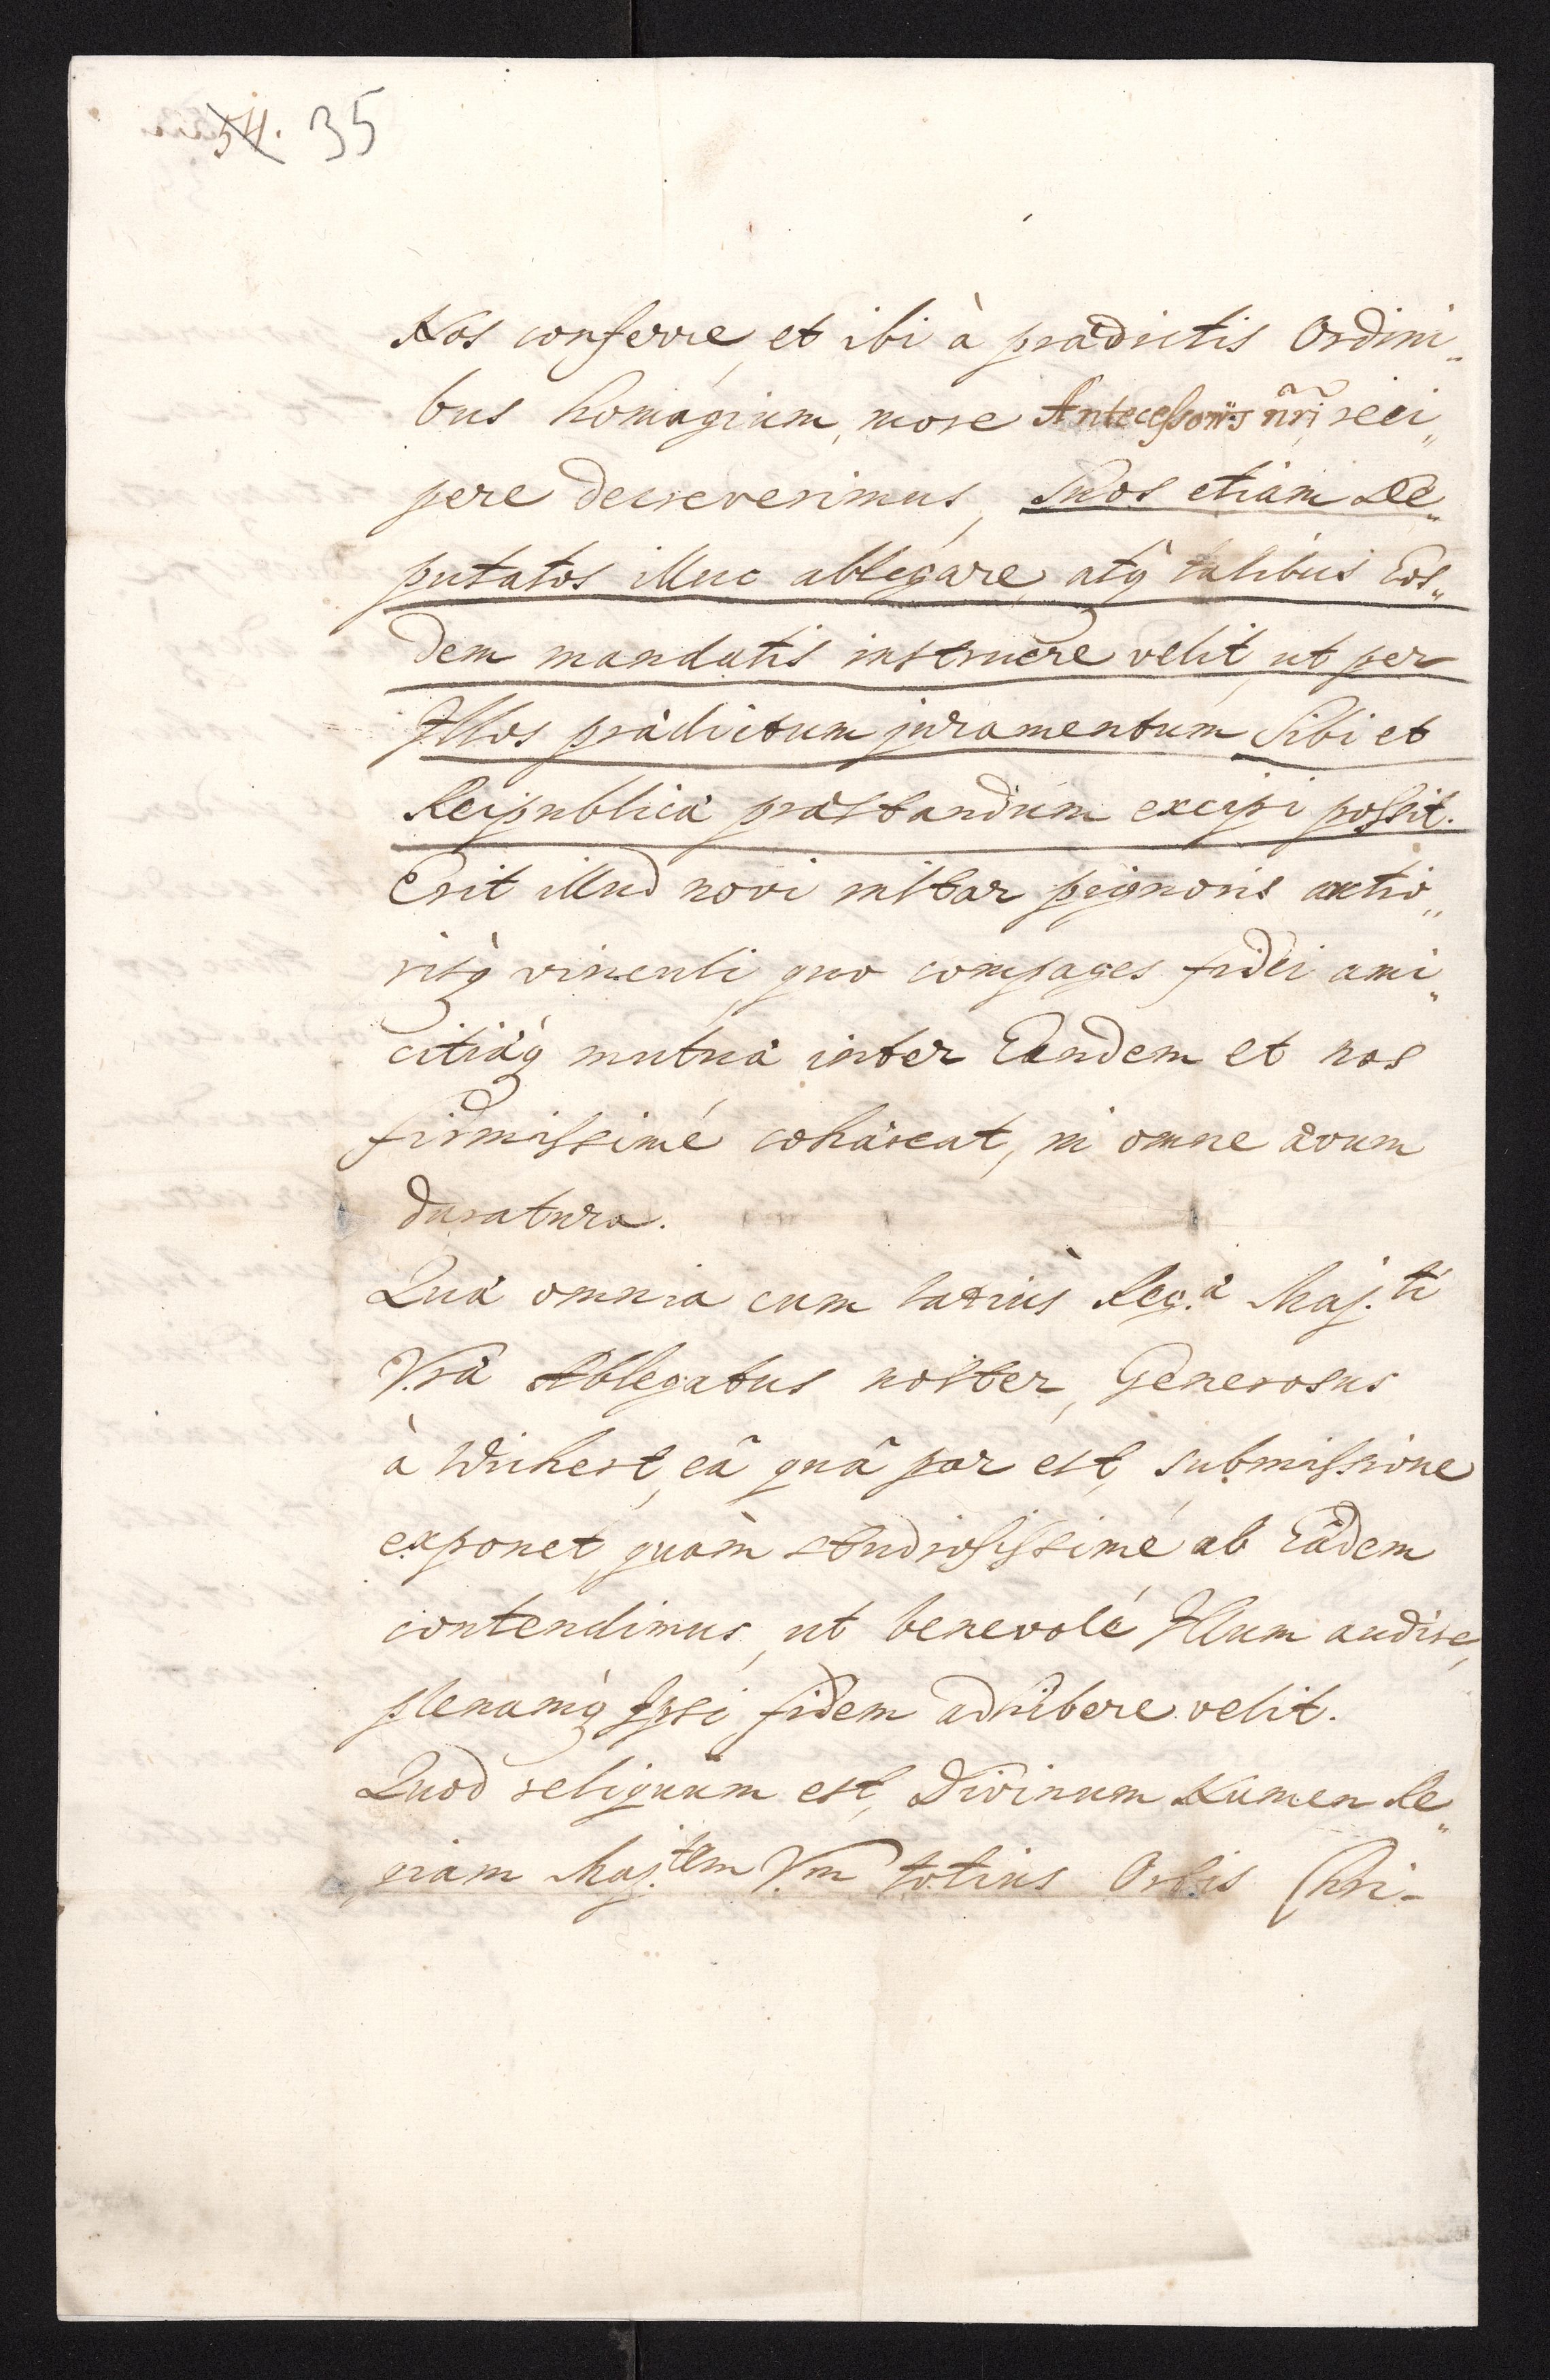 54. 35
Nos conferre, et ibi à prædictis Ordini„
bus homagium, more Antecessoris nr̃i, reci„
pere decreverimus, Suos etiam De„
putatos illuc ablegare, atq̀ talibus Eos„
dem mandatis instruere velit, ut per
Illos prædictum juramentum Sibi et
Reipublicæ præstandum excipi possit.
Erit illud novi instar pignoris arctio„
risq̀ vinculi, quo compages fidei ami„
citiæq̀ mutuæ inter Eandem et nos
firmissimé cohæreat, in omne ævum
duratura.
Quæ omnia cum latiùs Reg.æ Maj.ti
Vræ Ablegatus noster, Generosus
à Wichert, eâ quâ par est, submissione
exponet, quàm studiosissimé ab Eâdem
contendimus, ut benevolé Illum audire,
plenamq̀ Ipsi fidem adhibere velit.
Quod reliquum est, Divinum Numen Re„
giam Maj.tem Vrm totius Orbis Chri-